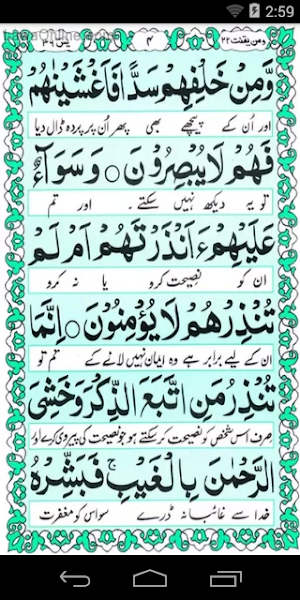 2:59
ومن یقنت ۲۲
۴
یٰس ۳۶
وَّمِنْ خَلْفِهِمْ سَدًّا فَاَغْشَيْنٰهُمْ
اور اُن کے پیچھے بھی پھر اُن پر پردہ ڈال دیا
فَهُمْ لَا يُبْصِرُوْنَ ○ وَسَوَآءٌ
تو یہ دیکھ نہیں سکتے ۔ اور تم
عَلَيْهِمْ ءَاَنْذَرْتَهُمْ اَمْ لَمْ
ان کو نصیحت کرو یا نہ کرو
تُنْذِرْهُمْ لَا يُؤْمِنُوْنَ ○ اِنَّمَا
ان کے لیے برابر ہے وہ ایمان نہیں لانے کے تم تو
تُنْذِرُ مَنِ اتَّبَعَ الذِّكْرَ وَخَشِيَ
صرف اس شخص کو نصیحت کر سکتے ہو جو نصیحت کی پیروی کرے اور
الرَّحْمٰنَ بِالْغَيْبِ ۚ فَبَشِّرْهُ
خدا سے غائبانہ ڈرے سو اس کو مغفرت